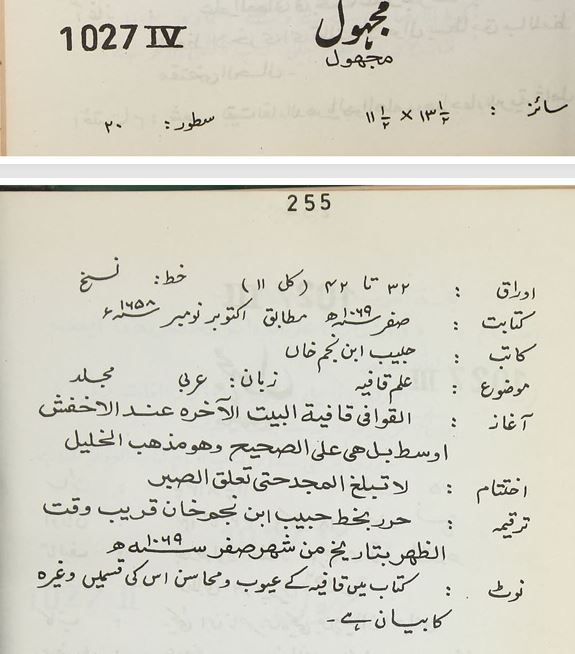 1027 IV
مجہول
مجھول
سائز : ۱۳½ × ۱۱½ سطور: ۲۰
255
اوراق : ۳۲ تا ۴۲ (کل ۱۱) خط: نسخ
کتابت : صفر ۱۰۶۹ھ مطابق اکتوبر نومبر ۱۶۵۸ء
کاتب : حبیب ابن نجم خاں
موضوع : علم قافیہ زبان: عربی مجلد
آغاز : القوافی قافیة البیت الآخره عند الاخفش
اوسط بل هی علی الصحیح وهو مذهب الخلیل
اختتام : لا تبلغ المجد حتی تعلق الصبر
ترقیمہ : حرر بخط حبیب ابن نجم خان قریب وقت
الظهر بتاریخ من شهر صفر سنه ۱۰۶۹ھ
نوٹ : کتاب میں قافیہ کے عیوب و محاسن اس کی قسمیں وغیرہ
کا بیان ہے۔